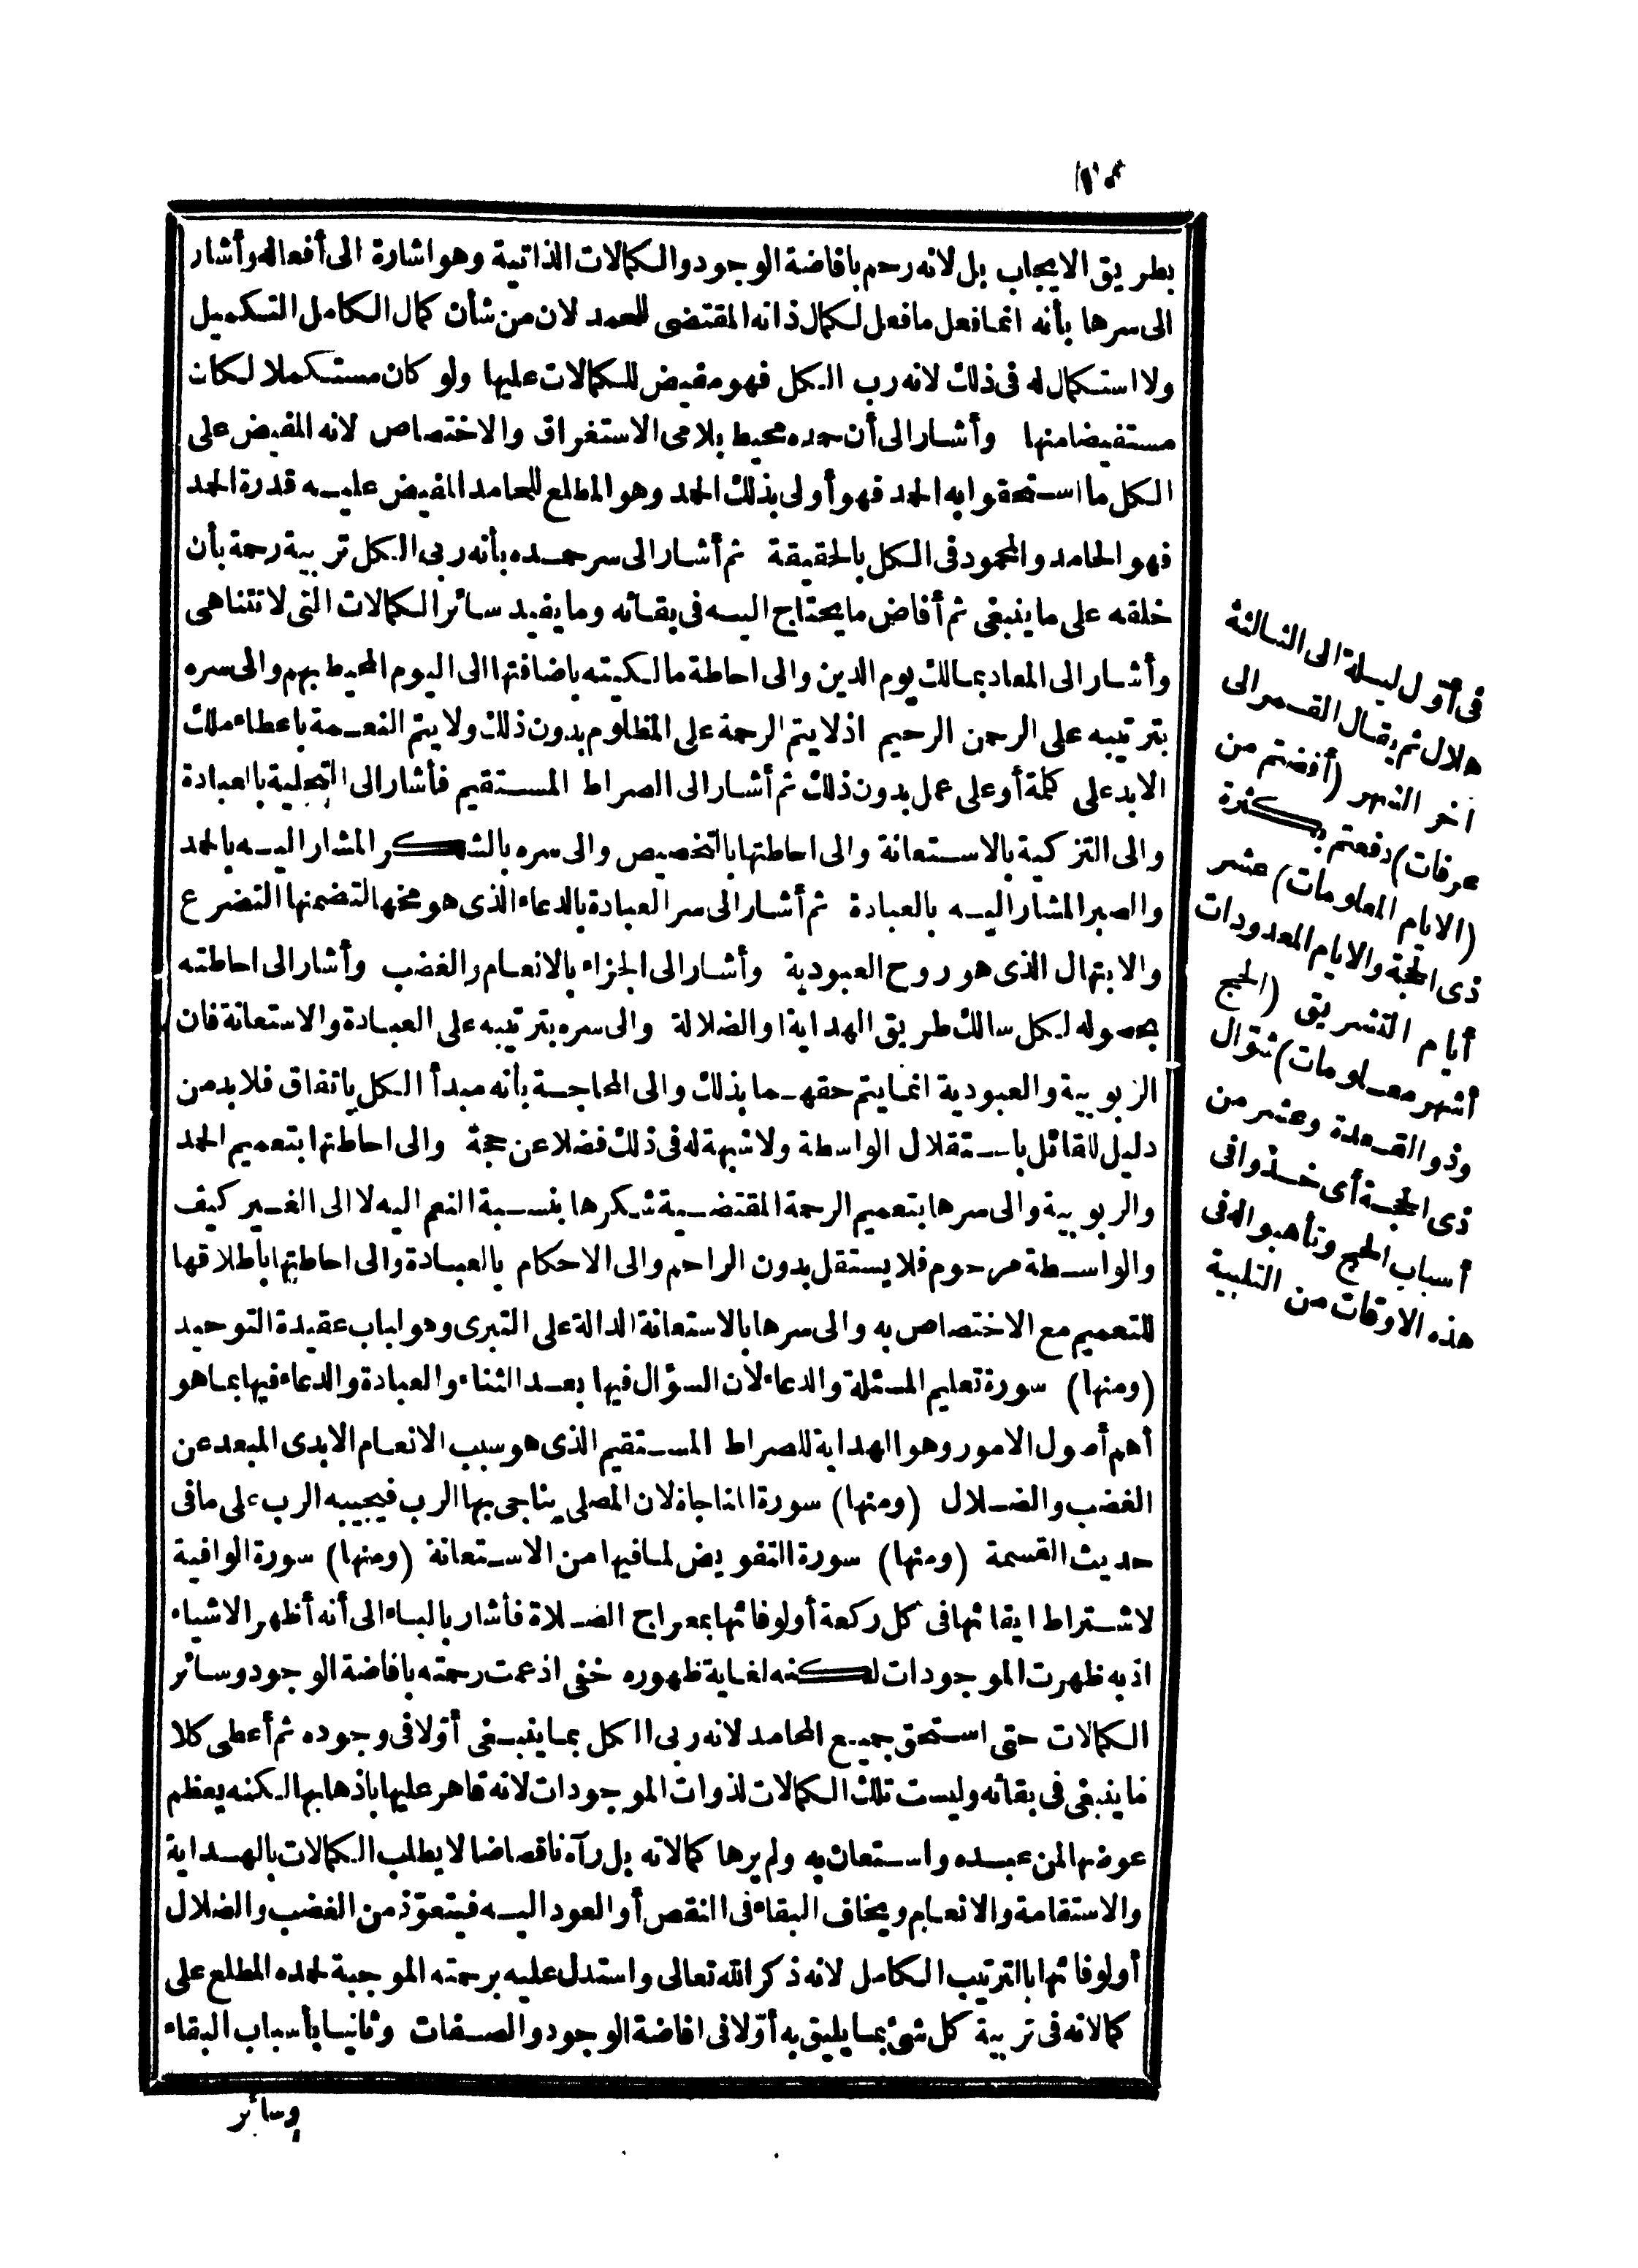 بطريق الايجاب بل لانه رحم بافاضة الوجود والكمالات الذاتية وهو اشارة الى أفعاله وأشار
الى سرها بأنه انما فعل ما فعل لكمال ذاته المقتضى للحمد لان من شأن كمال الكامل التكميل
ولا استكمال له فى ذلك لانه رب الكل فهو مفيض للكمالات عليها ولو كان مستكملا لكان
مستفيضا منها وأشار الى أن حمده محيط بلامى الاستغراق والاختصاص لانه المفيض على
الكل ما استحقوا به الحمد فهو أولى بذلك الحمد وهو المطلع للمحامد المفيض عليه قدرة الحمد
فهو الحامد والمحمود فى الكل بالحقيقة ثم أشار الى سر حمده بأنه ربى الكل تربية رحمة بأن
خلقه على ما ينبغى ثم أفاض ما يحتاج اليه فى بقائه وما يفيد سائر الكمالات التى لا تتناهى
وأشار الى المعاد بمالك يوم الدين والى احاطة مالكيته باضافتها الى اليوم المحيط بهم والى سره
بترتيبه على الرحمن الرحيم اذ لا يتم الرحمة على المظلوم بدون ذلك ولا يتم النعمة باعطاء ملك
الابد على كلمة أو على عمل بدون ذلك ثم أشار الى الصراط المستقيم فأشار الى التحلية بالعبادة
والى التزكية بالاستعانة والى احاطتها بالتخصيص والى سره بالشكر المشار اليه بالحمد
والصبر المشار اليه بالعبادة ثم أشار الى سر العبادة بالدعاء الذى هو مخها لتضمنها التضرع
والابتهال الذى هو روح العبودية وأشار الى الجزاء بالانعام والغضب وأشار الى احاطته
بحصوله لكل سالك طريق الهداية او الضلالة والى سره بترتيبه على العبادة والاستعانة فان
الربوبية والعبودية انما يتم حقهما بذلك والى المحاجة بأنه مبدأ الكل باتفاق فلا بد من
دليل للقائل باستقلال الواسطة ولا شبهة له فى ذلك فضلا عن حجة والى احاطتها بتعميم الحمد
والربوبية والى سرها بتعميم الرحمة المقتضية شكرها بنسبة النعم اليه لا الى الغير كيف
والواسطة مرحوم فلا يستقل بدون الراحم والى الاحكام بالعبادة والى احاطتها باطلاقها
للتعميم مع الاختصاص به والى سرها بالاستعانة الدالة على التبرى وهو لباب عقيدة التوحيد
(ومنها) سورة تعليم المسئلة والدعاء لان السؤال فيها بعد الثناء والعبادة والدعاء فيها بما هو
أهم أصول الامور وهو الهداية للصراط المستقيم الذى هو سبب الانعام الابدى المبعد عن
الغضب والضلال (ومنها) سورة المناجاة لان المصلى يناجى بها الرب فيجيبه الرب على ما فى
حديث القسمة (ومنها) سورة التفويض لما فيها من الاستعانة (ومنها) سورة الوافية
لاشتراط ايفائها فى كل ركعة أو لوفائها بمعراج الصلاة فأشار بالباء الى أنه أظهر الاشياء
اذ به ظهرت الموجودات لكنه لغاية ظهوره خفى اذ عمت رحمته بافاضة الوجود وسائر
الكمالات حتى استحق جميع المحامد لانه ربى الكل بما ينبغى أوّلا فى وجوده ثم أعطى كلا
ما ينبغى فى بقائه وليست تلك الكمالات لذوات الموجودات لانه قاهر عليها باذهابها لكنه يعظم
عوضها لمن عبده واستعان به ولم يرها كمالاته بل رآه ناقصا ضالا يطلب الكمالات بالهداية
والاستقامة والانعام ويخاف البقاء فى النقص أو العود اليه فيتعوّذ من الغضب والضلال
أو لوفائها بالترتيب الكامل لانه ذكر الله تعالى واستدل عليه برحمته الموجبة لحمده المطلع على
كمالاته فى تربية كل شئ بما يليق به أوّلا فى افاضة الوجود والصفات وثانيا بأسباب البقاء
وسائر
فى أوّل ليلة الى الثالثة
هلال ثم يقال القمر الى
آخر الشهر (أفضتم من
عرفات) دفعتم بكثرة
(الايام المعلومات) عشر
ذى الحجة والايام المعدودات
أيام التشريق (الحج
أشهر معلومات) شوّال
وذو القعدة وعشر من
ذى الحجة أى خذوا فى
أسباب الحج وتأهبوا له فى
هذه الاوقات من التلبية